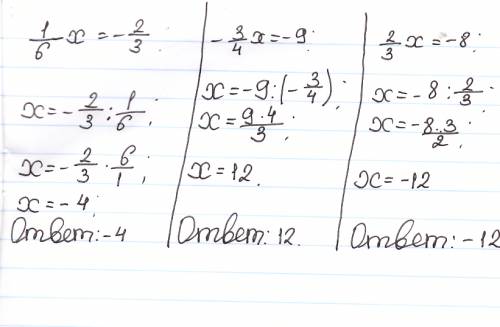 1/6 x = -2/3;
x = -2/3 : 1/6;
x = -2/3 · 6/1;
x = -4;
Ответ: -4
-3/4 x = -9;
x = -9 : (-3/4);
x = 9·4/3;
x = 12.
Ответ: 12.
2/3 x = -8;
x = -8 : 2/3;
x = -8·3/2;
x = -12
Ответ: -12